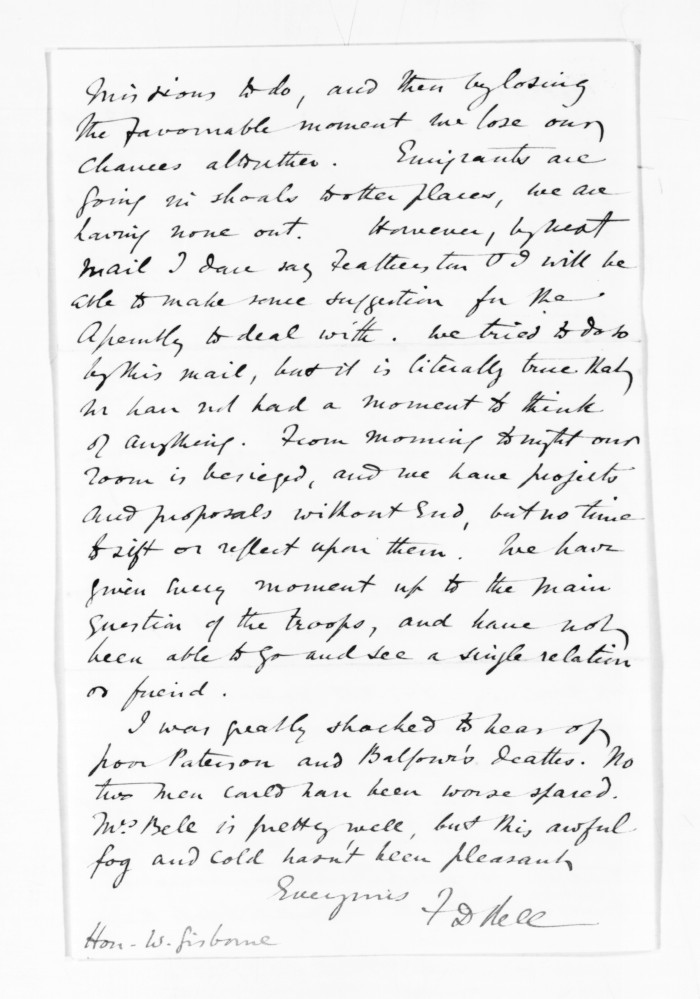 missions to do, and then by losing
the favourable moment we lose our
chances altogether. Emigrants are
going in shoals to other places, we are
having none out. However, by next
mail I dare say Featherston & I will be
able to make some suggestion for the
Assembly to deal with. We tried to do so
by this mail, but it is literally true that
we have not had a moment to think
of anything. From morning to night our
room is besieged, and we have projects
and proposals without End, but no time
to sift or reflect upon them. We have
given every moment up to the main
question of the troops, and have not
been able to go and see a single relation
or friend.
I was greatly shocked to hear of
poor Paterson and Balfour's deaths. No
two men could have been worse spared.
Mrs Bell is pretty well, but this awful
fog and cold hasn't been pleasant
Ever yours
F D Bell
Hon. W. Gisborne